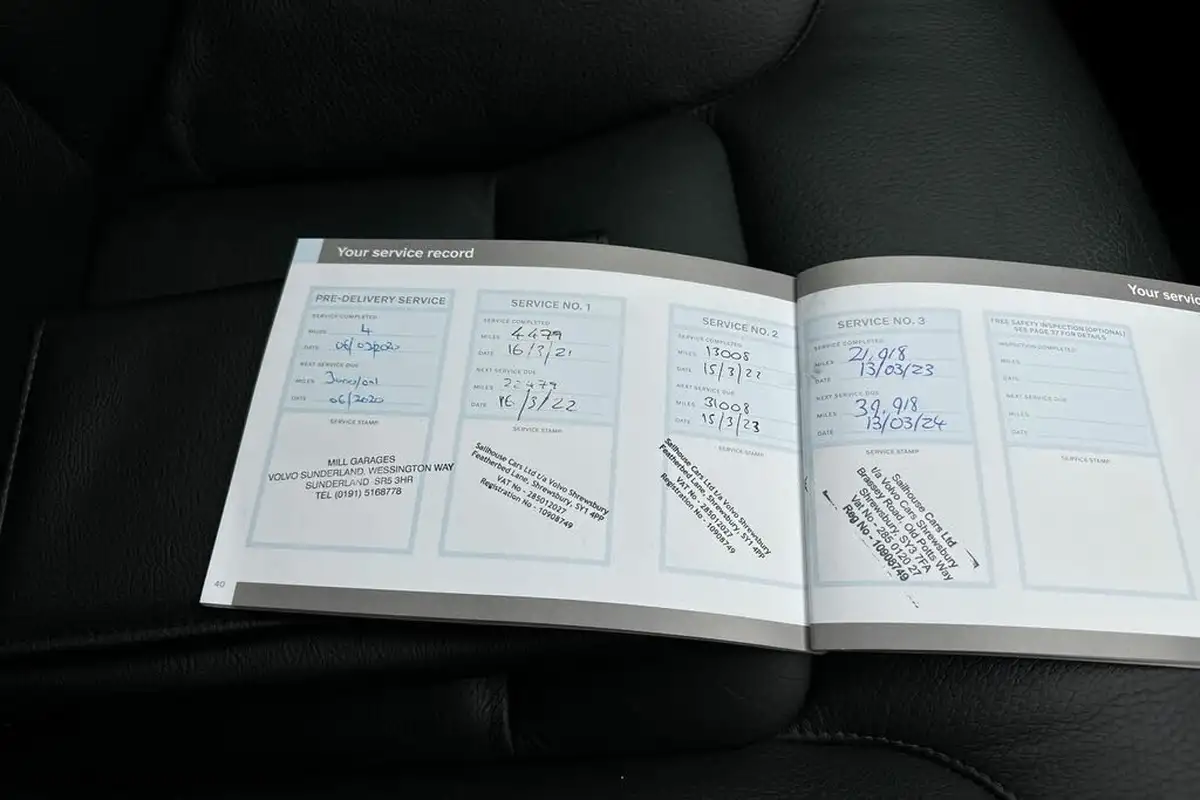 Your service record
PRE-DELIVERY SERVICE
SERVICE COMPLETED
MILES 4
DATE
NEXT SERVICE DUE
MILES
DATE 06/2020
SERVICE STAMP
MILL GARAGES
VOLVO SUNDERLAND, WESSINGTON WAY
SUNDERLAND SR5 3HR
TEL (0191) 5168778
40
SERVICE NO. 1
SERVICE COMPLETED
MILES 4479
DATE 16/3/21
NEXT SERVICE DUE
MILES 22479
DATE 16/3/22
SERVICE STAMP
Sailhouse Cars Ltd t/a Volvo Shrewsbury
Featherbed Lane, Shrewsbury, SY1 4PP
VAT No - 285012027
Registration No - 10908749
SERVICE NO. 2
SERVICE COMPLETED
MILES 13008
DATE 15/3/22
NEXT SERVICE DUE
MILES 31008
DATE 15/3/23
SERVICE STAMP
Sailhouse Cars Ltd t/a Volvo Shrewsbury
Featherbed Lane, Shrewsbury, SY1 4PP
VAT No - 285012027
Registration No - 10908749
Your servic
SERVICE NO. 3
SERVICE COMPLETED
MILES 21,918
DATE 13/03/23
NEXT SERVICE DUE
MILES 39,918
DATE 13/03/24
SERVICE STAMP
Sailhouse Cars Ltd
t/a Volvo Cars Shrewsbury
Brassey Road, Old Potts Way
Shrewsbury, SY3 7FA
Vat No - 285 0120 27
Reg No - 10908749
FREE SAFETY INSPECTION (OPTIONAL)
SEE PAGE 37 FOR DETAILS
INSPECTION COMPLETED
MILES
DATE
NEXT SERVICE DUE
MILES
DATE
SERVICE STAMP